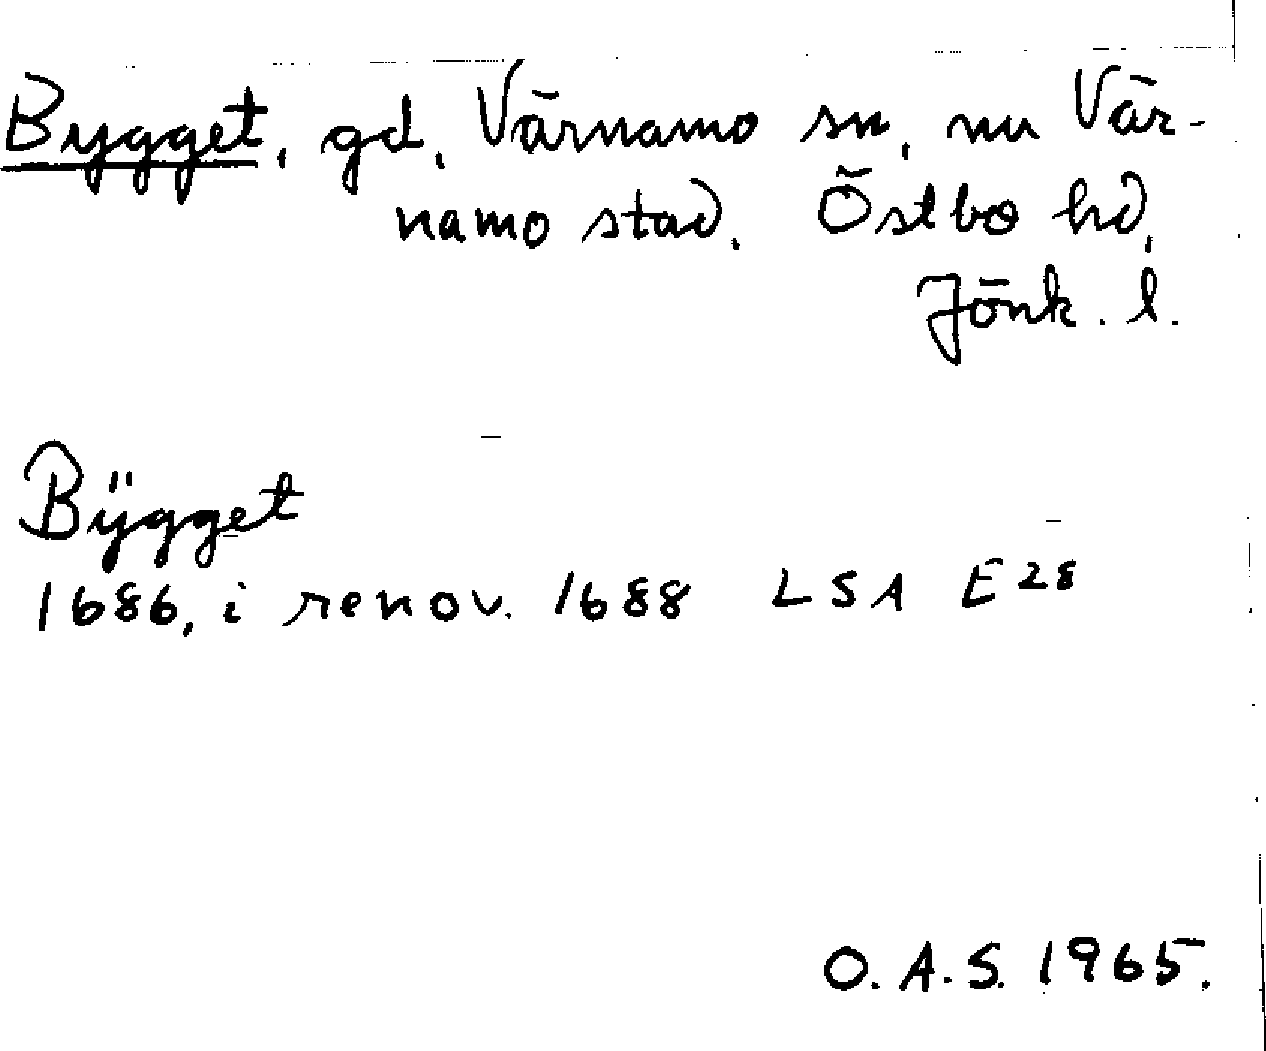 Bygget, gd, Värnamo sn, nu Vär-
namo stad. Östbo hd,
Jönk. l.
Bÿgget
1686, i renov. 1688 LSA E 28
O. A. S. 1965.